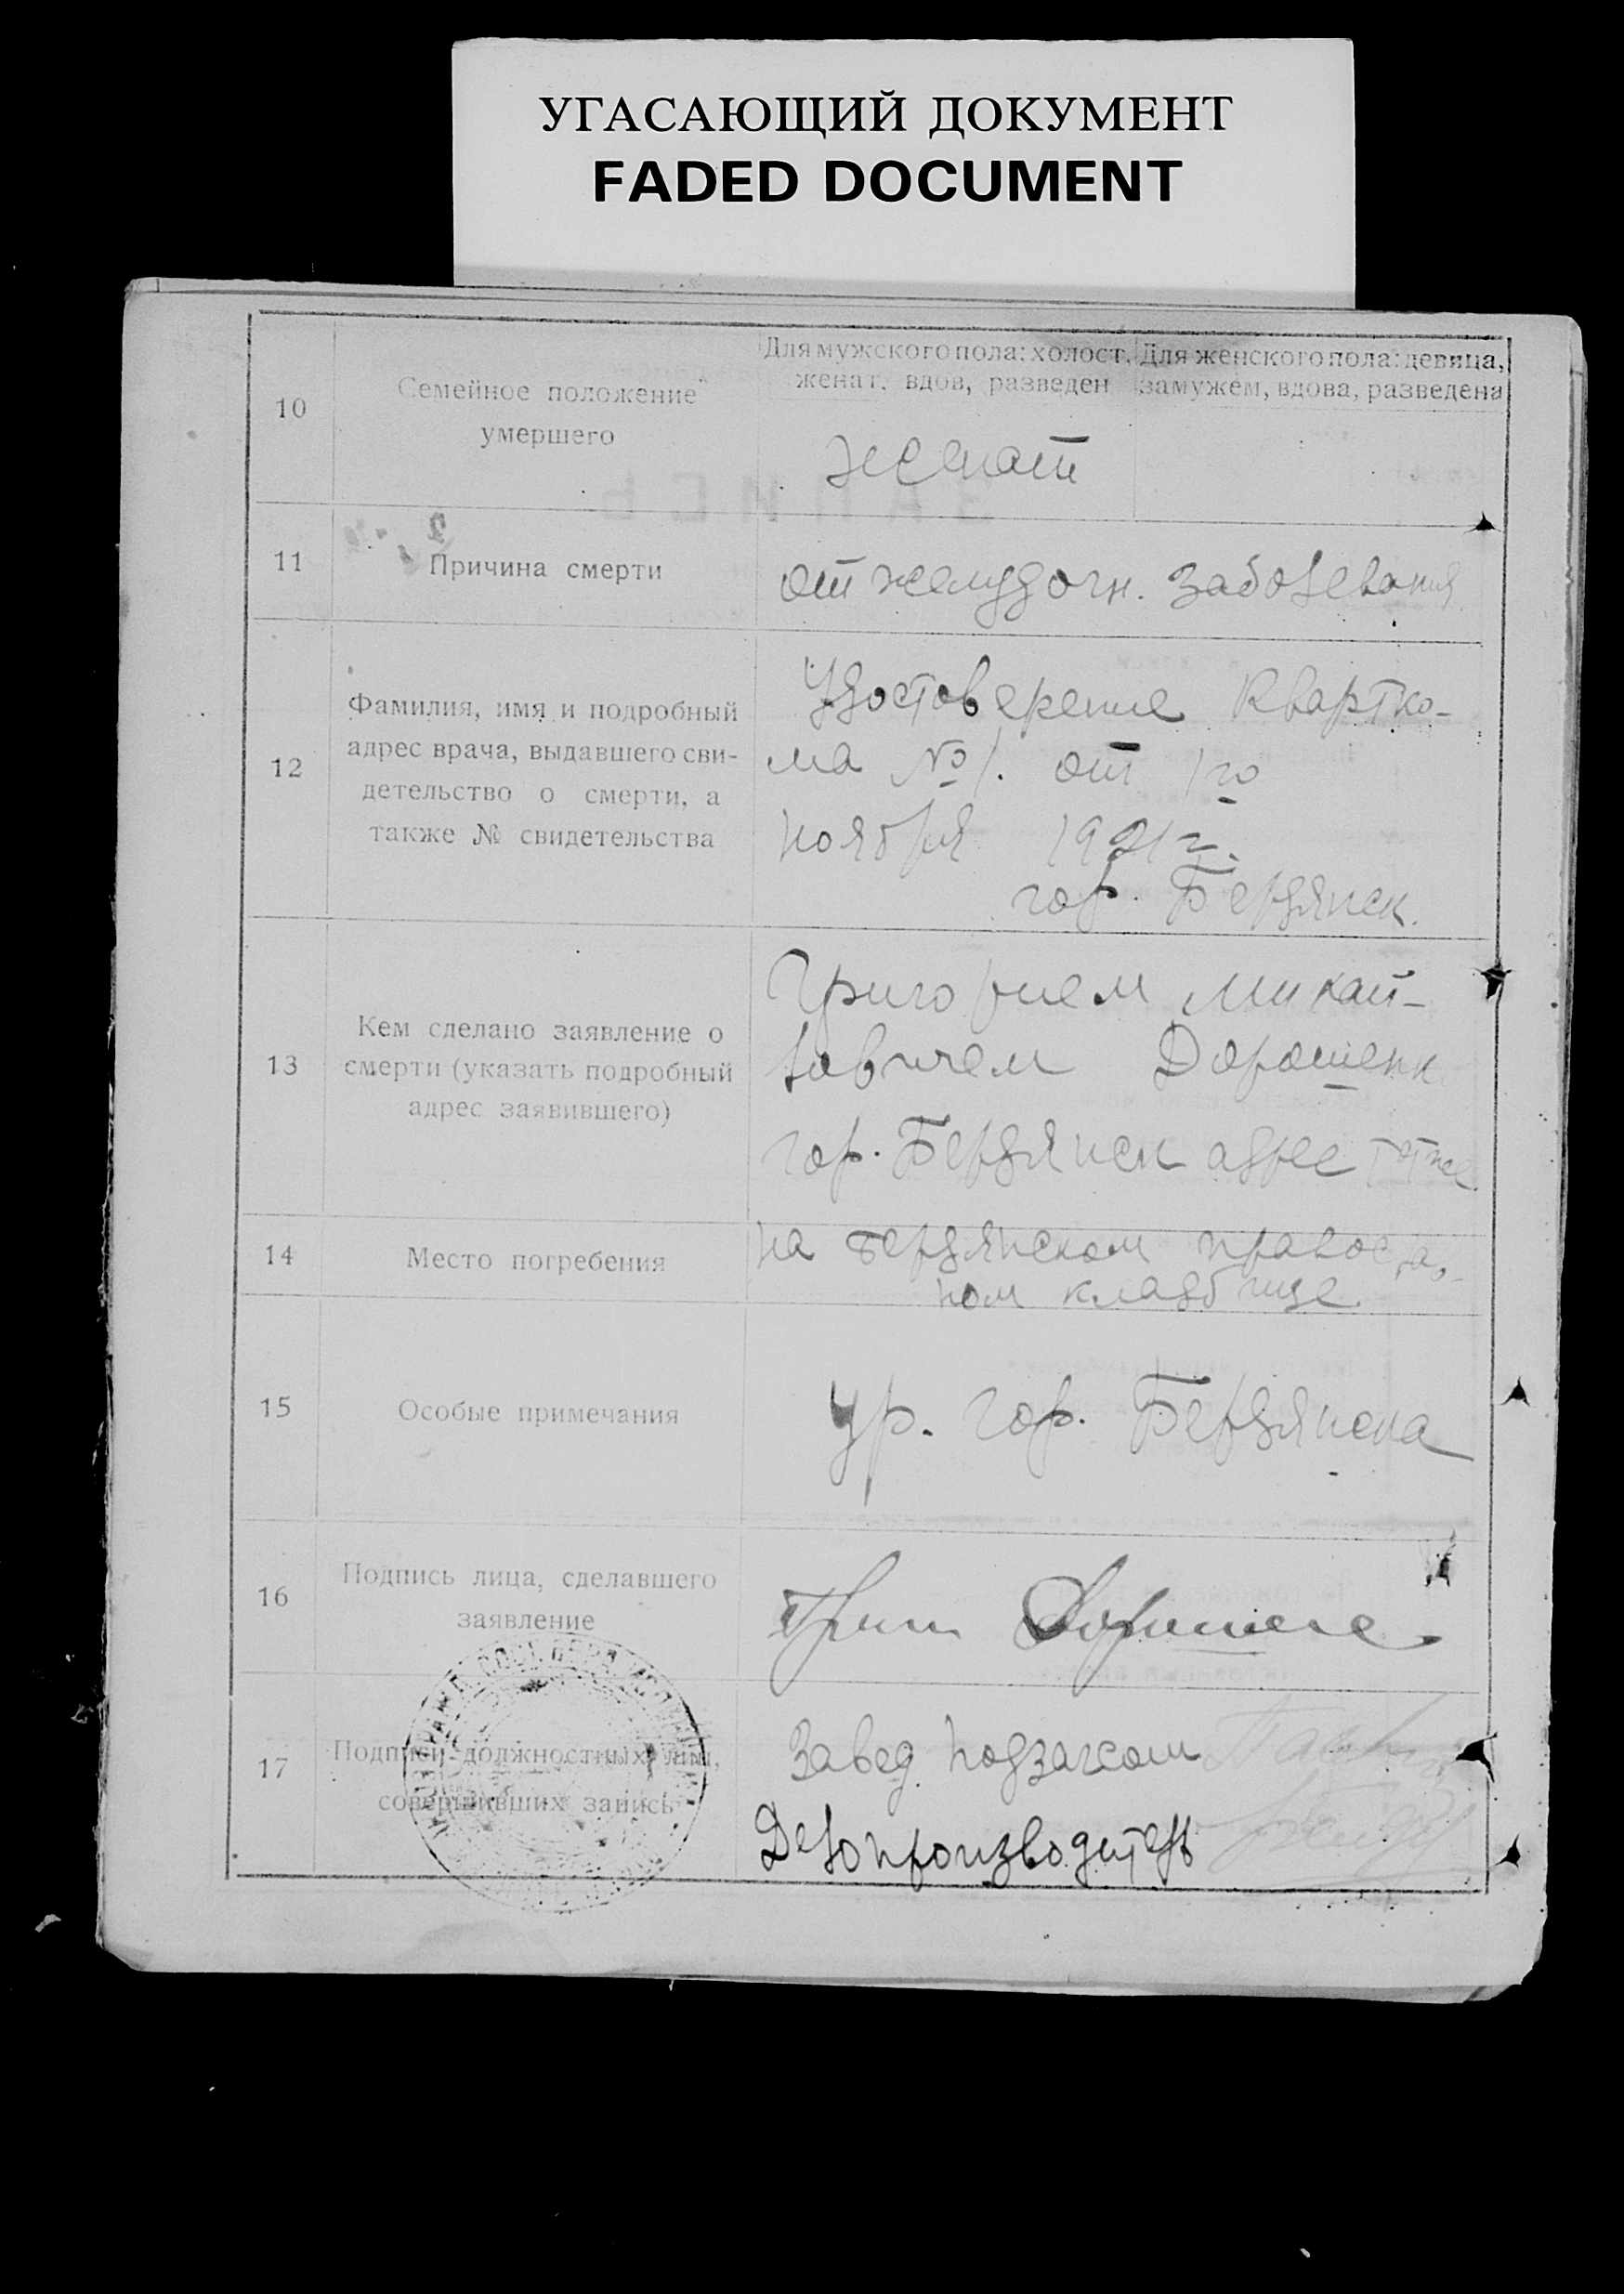 УГАСАЮЩИЙ ДОКУМЕНТ
FADED DOCUMENT
10
Семейное положение
умершего
Для мужского пола: холост,
женат, вдов, разведен
Для женского пола: девица,
замужем, вдова, разведена
женат
11
Причина смерти
от желудочн. заболевания
12
Фамилия, имя и подробный
адрес врача, выдавшего сви-
детельство о смерти, а
также № свидетельства
Удостоверение Квартко-
ма № 1. от 1го
ноября 1921 г.
гор. Бердянск.
13
Кем сделано заявление о
смерти (указать подробный
адрес заявившего)
Григорием Михай-
ловичем Дорошенк
гор. Бердянск адрес тотже
14
Место погребения
на бердянском православ-
ном кладбище.
15
Особые примечания
Ур. гор. Бердянска
16
Подпись лица, сделавшего
заявление
17
Подписи должностных лиц,
совершивших запись
Завед. подзагсом
Делопроизводитель